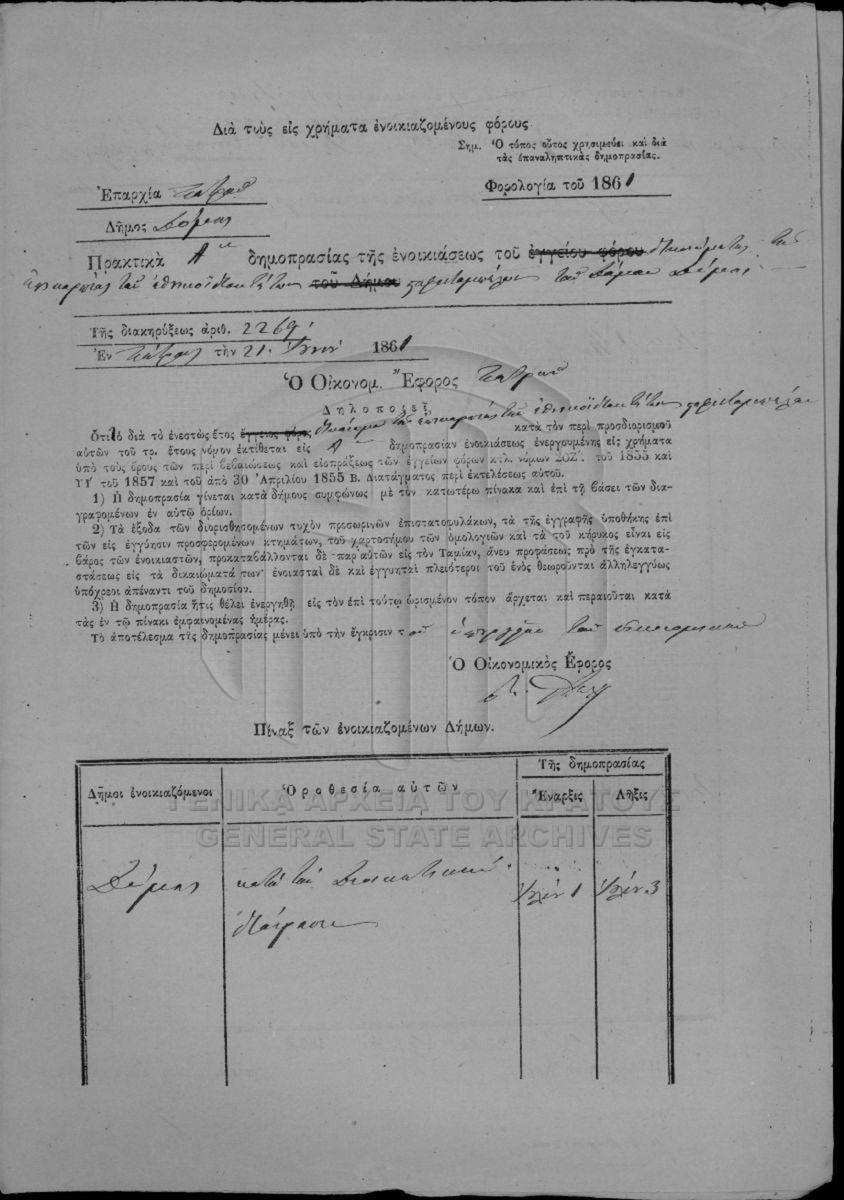 Διὰ τοὺς εἰς χρήματα ἐνοικιαζομένους φόρους
Σημ. Ὁ τύπος οὗτος χρησιμεύει καὶ διὰ
τὰς ἐπαναληπτικὰς δημοπρασίας.
Ἐπαρχία Πατρῶν
Φορολογία τοῦ 1861
Δῆμος Δύμης
Πρακτικὰ Α δημοπρασίας τῆς ἐνοικιάσεως τοῦ ἐγγείου φόρου δικαιώματος τῆς
ἐπικαρπίας τῶν ἐθνικοϊδιοκτήτων τοῦ Δήμου τοῦ Δήμου Δύμης
Τῆς διακηρύξεως ἀριθ. 2269
Ἐν Πάτραις τὴν 21 Ἰουνίου 1861
Ὁ Οἰκονομ. Ἔφορος Πατρῶν
Δηλοποιεῖ
Ὅτι τὸ διὰ τὸ ἐνεστὼς ἔτος ἔγγειος φόρος δικαίωμα τῆς ἐπικαρπίας τῶν ἐθνικοϊδιοκτήτων κατὰ τὸν περὶ προσδιορισμοῦ
αὐτῶν τοῦ τρ. ἔτους νόμον ἐκτίθεται εἰς Α δημοπρασίαν ἐνοικιάσεως ἐνεργουμένης εἰς χρήματα
ὑπὸ τοὺς ὅρους τῶν περὶ βεβαιώσεως καὶ εἰσπράξεως τῶν ἐγγείων φόρων κτλ. νόμων ΣΟΖ΄. τοῦ 1855 καὶ
ΥΓ΄ τοῦ 1857 καὶ τοῦ ἀπὸ 30 Ἀπριλίου 1855 Β. Διατάγματος περὶ ἐκτελέσεως αὐτοῦ.
1) Ἡ δημοπρασία γίνεται κατὰ δήμους συμφώνως μὲ τὸν κατωτέρω πίνακα καὶ ἐπὶ τῇ βάσει τῶν δια-
γραφομένων ἐν αὐτῷ ὁρίων.
2) Τὰ ἔξοδα τῶν διορισθησομένων τυχὸν προσωρινῶν ἐπιστατοφυλάκων, τὰ τῆς ἐγγραφῆς ὑποθήκης ἐπὶ
τῶν εἰς ἐγγύησιν προσφερομένων κτημάτων, τοῦ χαρτοσήμου τῶν ὁμολογιῶν καὶ τὰ τοῦ κήρυκος εἶναι εἰς
βάρος τῶν ἐνοικιαστῶν, προκαταβάλλονται δὲ παρ' αὐτῶν εἰς τὸν Ταμίαν, ἄνευ προφάσεως πρὸ τῆς ἐγκατα-
στάσεως εἰς τὰ δικαιώματά των· ἐνοιασταὶ δὲ καὶ ἐγγυηταὶ πλειότεροι τοῦ ἑνὸς θεωροῦνται ἀλληλεγγύως
ὑπόχρεοι ἀπέναντι τοῦ δημοσίου.
3) Ἡ δημοπρασία ἥτις θέλει ἐνεργηθῆ εἰς τὸν ἐπὶ τούτῳ ὡρισμένον τόπον ἄρχεται καὶ περαιοῦται κατὰ
τὰς ἐν τῷ πίνακι ἐμφαινομένας ἡμέρας.
Τὸ ἀποτέλεσμα τῆς δημοπρασίας μένει ὑπὸ τὴν ἔγκρισιν τοῦ ὑπουργείου τῶν οἰκονομικῶν
Ὁ Οἰκονομικὸς Ἔφορος
Πίναξ τῶν ἐνοικιαζομένων Δήμων.
Τῆς δημοπρασίας
Δῆμοι ἐνοικιαζόμενοι Ὁροθεσία αὐτῶν Ἔναρξις Λῆξις
ΓΕΝΙΚΑ ΑΡΧΕΙΑ ΤΟΥ ΚΡΑΤΟΥΣ
GENERAL STATE ARCHIVES
Δύμης κατὰ τὴν Διοικητικὴν Ἰουλίου 1 Ἰουλίου 3
διαίρεσιν